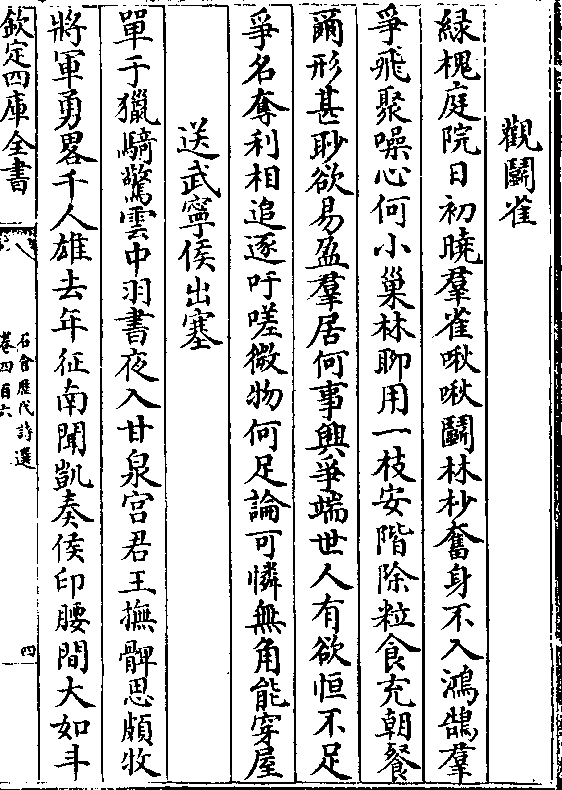 觀鬭雀
緑槐庭院日初曉羣雀啾啾鬭林杪奮身不入鴻鵠羣
爭飛聚噪心何小巢林聊用一枝安階除粒食充朝餐
爾形甚眇欲易盈羣居何事興爭端世人有欲恒不足
爭名奪利相追逐吁嗟微物何足論可憐無角能穿屋
送武寧侯出塞
單于獵騎驚雲中羽書夜入甘泉宫君王撫髀思頗牧
將軍勇畧千人雄去年征南聞凱奏侯印腰間大如斗
欽定四庫全書
石倉歷代詩選
卷四百六
四